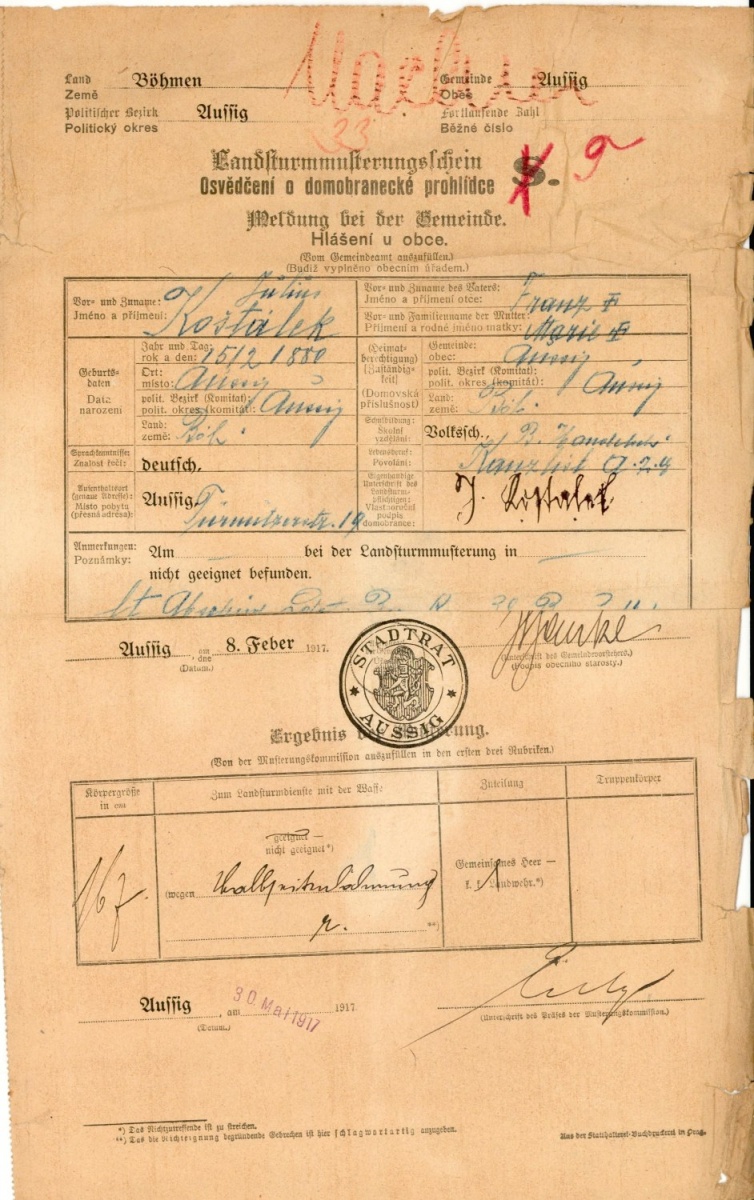 Land Böhmen Gemeinde Aussig
Země Obec
Politischer Bezirk Aussig Fortlaufende Zahl
Politický okres Běžné číslo
33
Landsturmmusterungsschein S. 9
Osvědčení o domobranecké prohlídce
Meldung bei der Gemeinde.
Hlášení u obce.
(Vom Gemeindeamt auszufüllen.)
(Budiž vyplněno obecním úřadem.)
Vor- und Zuname: Julius
Jméno a příjmení: Košťálek
Vor- und Zuname des Vaters: Franz
Jméno a příjmení otce:
Vor- und Familienname der Mutter: Marie
Příjmení a rodné jméno matky:
Geburts-daten
Data narození
Jahr und Tag:
rok a den: 15/2 1880
Ort:
místo: Aussig
polit. Bezirk (Komitat):
polit. okres (komitát): Aussig
Land:
země: Böh.
(Heimat-berechtigung)
(Zuständig-keit)
(Domovská příslušnost)
Gemeinde:
obec: Aussig
polit. Bezirk (Komitat):
polit. okres (komitát): Aussig
Land:
země: Böh.
Schulbildung:
Školní vzdělání: Volksch., B.
Sprachkenntnisse:
Znalost řečí: deutsch.
Lebensberuf:
Povolání: Kanzlist
Aufenthaltsort
(genaue Adresse):
Místo pobytu
(přesná adresa): Aussig Türmitzerstr. 19
Eigenhändige
Unterschrift des
Landsturm-
pflichtigen:
Vlastnoruční
podpis
domobrance: J. Kostalek
Anmerkungen: Am — bei der Landsturmmusterung in —
Poznámky: nicht geeignet befunden.
Aussig am 8. Feber 1917.
dne
(Datum.)
(Unterschrift des Gemeindevorstehers.)
(Podpis obecního starosty.)
STADTRAT
AUSSIG
Ergebnis der Musterung.
(Von der Musterungskommission auszufüllen in den ersten drei Rubriken.)
Körpergröße
in cm
Zum Landsturmdienste mit der Waffe
Zuteilung
Truppenkörper
geeignet —
nicht geeignet*)
167.
(wegen Halbseitenlähmung
r. **)
Gemeinsames Heer —
k. k. Landwehr.*)
Aussig, am 30 Mai 1917 1917.
(Datum.)
(Unterschrift des Präses der Musterungskommission.)
*) Das Nichtzutreffende ist zu streichen.
**) Das die Nichteignung begründende Gebrechen ist hier schlagwortartig anzugeben.
Aus der Statthalterei-Buchdruckerei in Prag.